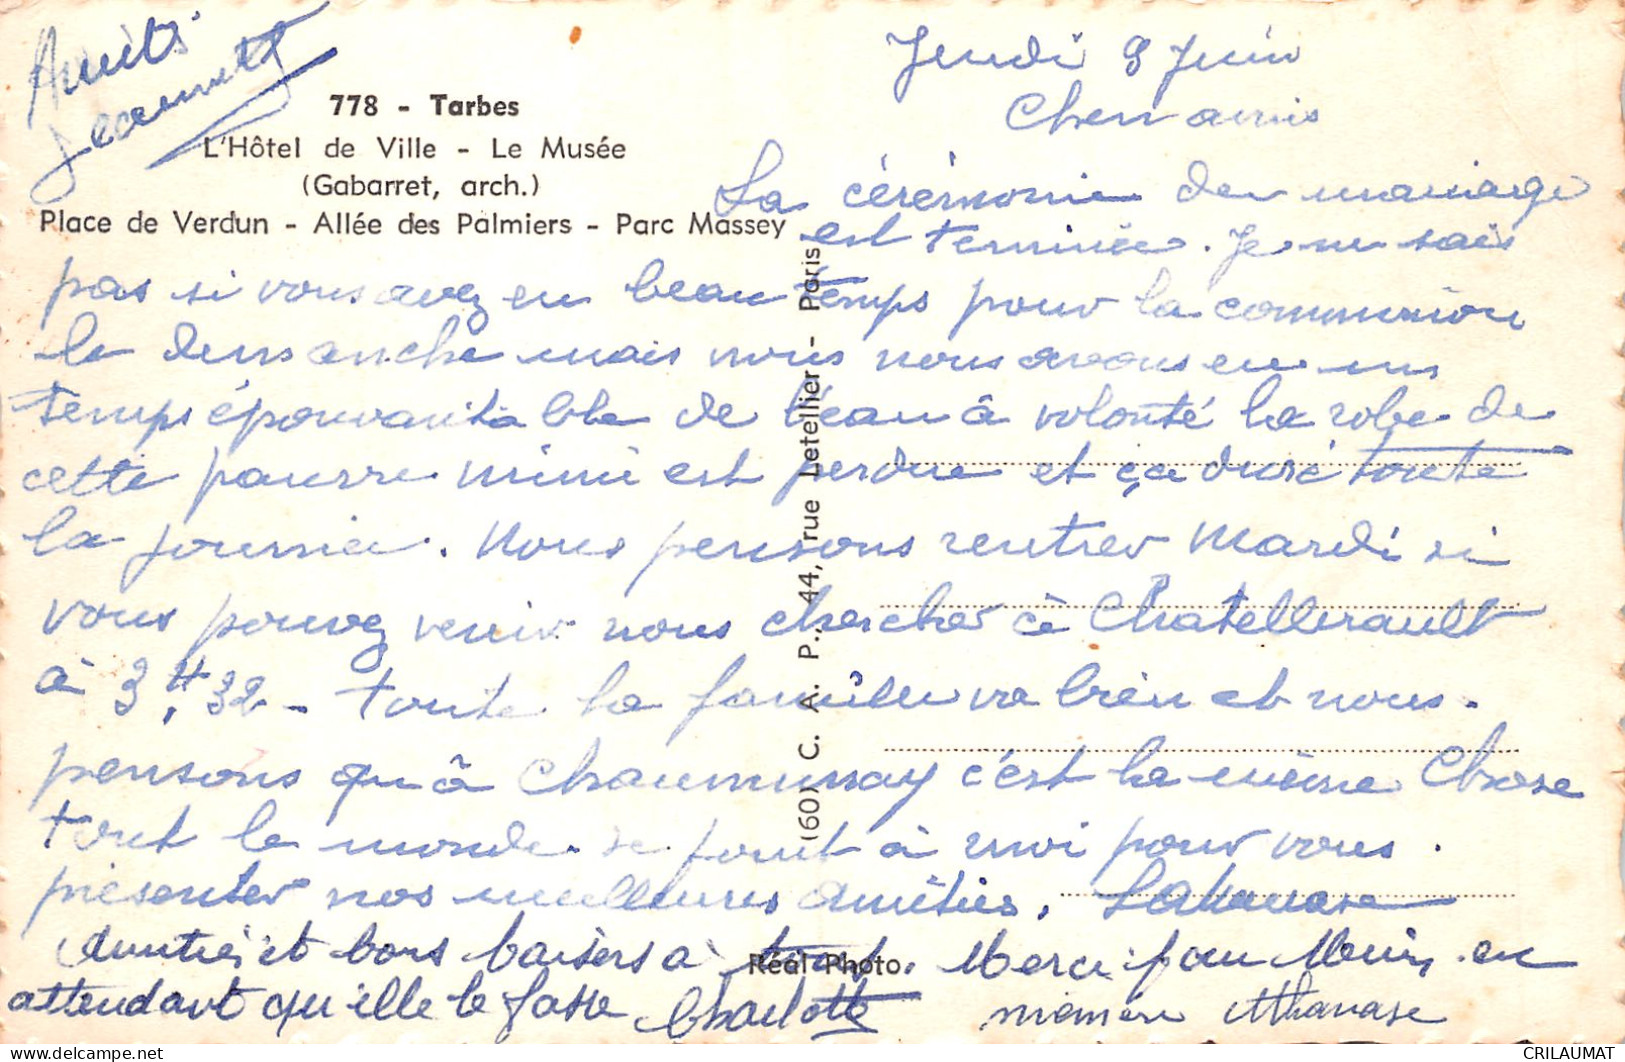 Amitiés
Jeannette
778 - Tarbes
L'Hôtel de Ville - Le Musée
(Gabarret, arch.)
Place de Verdun - Allée des Palmiers - Parc Massey
Jeudi 9 Juin
Cher amis
La cérémonie du mariage
est terminée. Je ne sais
pas si vous avez eu beau temps pour la communion
le dimanche mais nous nous avons eu un
temps épouvantable de l'eau à volonté la robe de
cette pauvre mimi est perdue et ça duré toute
la journée. Nous pensons rentrer Mardi si
vous pouvez venir nous chercher à Chatellerault
à 3H,32 - toute la famille va bien et nous
pensons qu'à Chaumussay c'est la même chose
tout le monde se joint à moi pour vous
présenter nos meilleures amitiés.
Amitié et bons baisers à tous. Merci pour en
attendant qu'elle le fasse Charlotte mémère Athanase
(60) C. A. P., 44, rue Letellier - Paris
Réal-Photo
CRILAUMAT